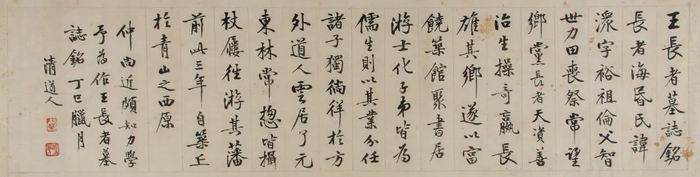 王長者墓誌銘
長者海昏民諱
字裕祖倫父智
世力田喪祭常望
鄉黨長者天資善
治生操奇贏長
雄其鄉遂以富
饒築館聚書居
游士化子弟皆為
儒生則以其業分任
諸子獨徜徉於方
外道人雲居了元
東林常揔皆攝
杖屨往游其藩
前此三年自築丘
於青山之西原
仲尚近頗知力學
予為作王長者墓
誌銘 丁巳臘月
清道人